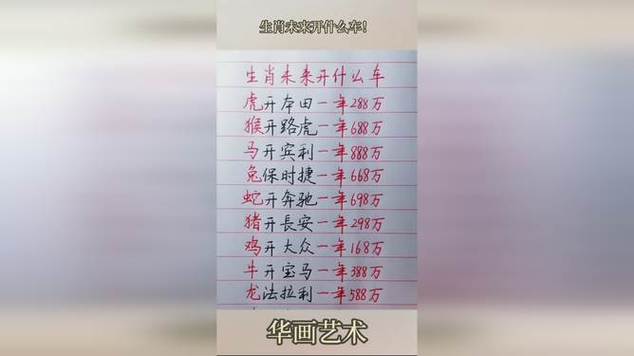 生肖未来开什么车!
生肖未来开什么车
虎开本田一年288万
猴开路虎一年688万
马开宾利一年888万
兔保时捷一年668万
蛇开奔驰一年698万
猪开長安一年298万
鸡开大众一年168万
牛开宝马一年388万
龙法拉利一年588万
华画艺术